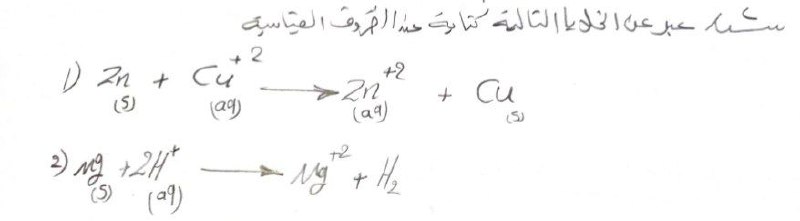 عبر عن الخلايا التالية كتابة عند الظروف القياسية
1) Zn(s) + Cu⁺²(aq) → Zn⁺²(aq) + Cu(s)
2) Mg(s) + 2H⁺(aq) → Mg⁺² + H₂